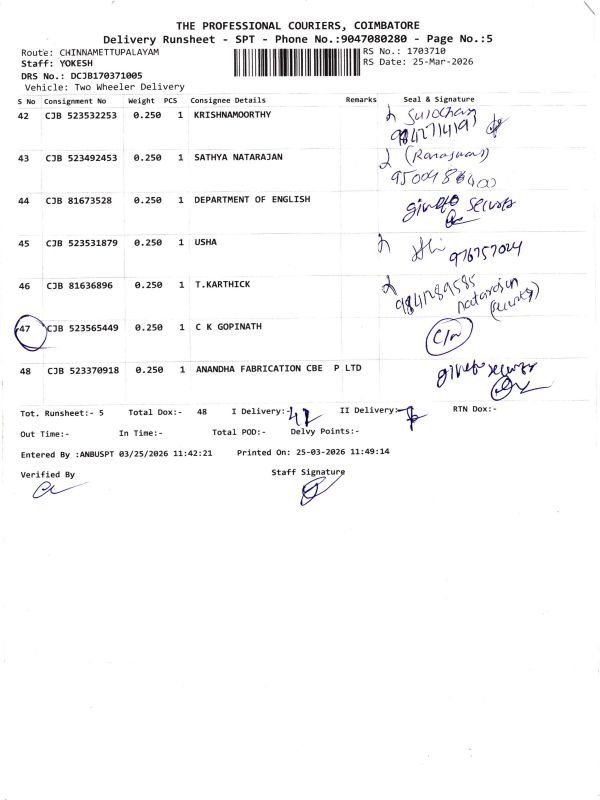 THE PROFESSIONAL COURIERS, COIMBATORE
Delivery Runsheet - SPT - Phone No.:9047080280 - Page No.:5
Route: CHINNAMETTUPALAYAM RS No.: 1703710
Staff: YOKESH RS Date: 25-Mar-2026
DRS No.: DCJB170371005
Vehicle: Two Wheeler Delivery
S No Consignment No Weight PCS Consignee Details Remarks Seal & Signature
42 CJB 523532253 0.250 1 KRISHNAMOORTHY
43 CJB 523492453 0.250 1 SATHYA NATARAJAN
44 CJB 81673528 0.250 1 DEPARTMENT OF ENGLISH
45 CJB 523531879 0.250 1 USHA
46 CJB 81636896 0.250 1 T.KARTHICK
9841289585
Natarajan
(security)
47 CJB 523565449 0.250 1 C K GOPINATH
48 CJB 523370918 0.250 1 ANANDHA FABRICATION CBE P LTD
Tot. Runsheet:- 5 Total Dox:- 48 I Delivery:- 47 II Delivery:- RTN Dox:-
Out Time:- In Time:- Total POD:- Delvy Points:-
Entered By :ANBUSPT 03/25/2026 11:42:21 Printed On: 25-03-2026 11:49:14
Verified By Staff Signature